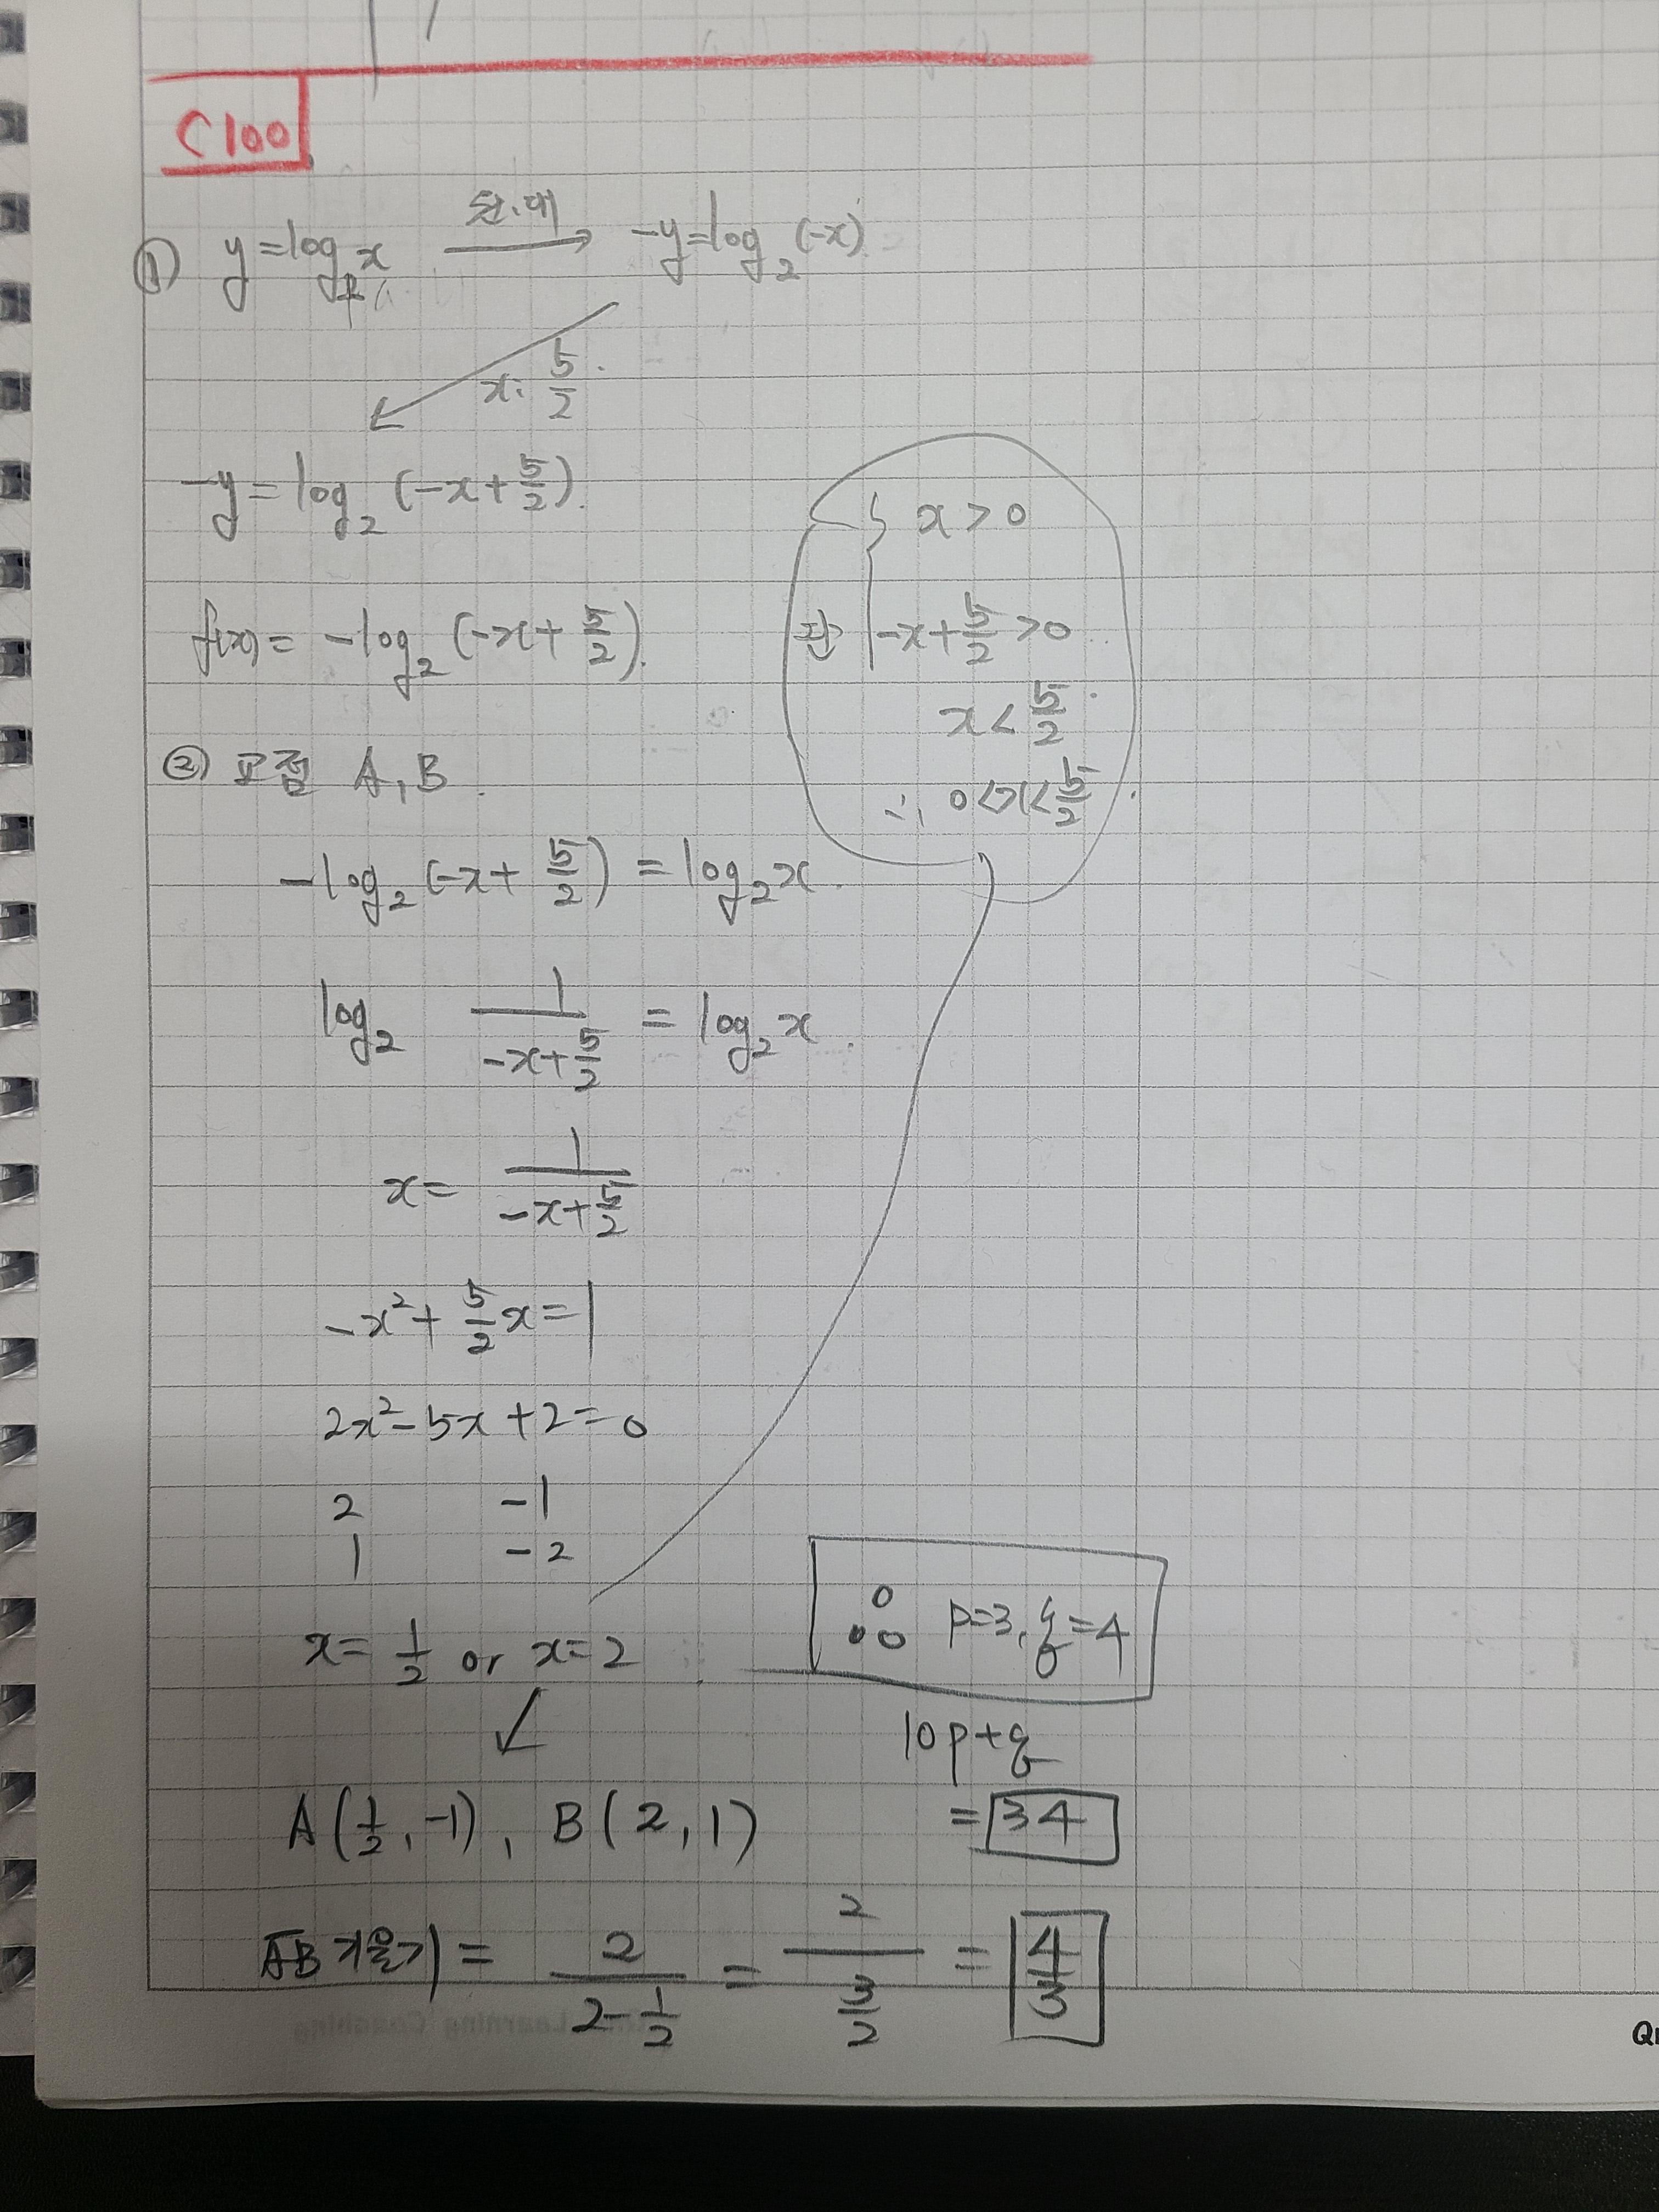 C100
① y=log₂x 원.대 → -y=log₂(-x)
x: 5/2
-y=log₂(-x+5/2).
f(x)= -log₂(-x+5/2).
x>0
진 -x+5/2>0
x<5/2
∴ 0<x<5/2
② 교점 A, B.
-log₂(-x+5/2)=log₂x.
log₂ 1/(-x+5/2) = log₂x.
x= 1/(-x+5/2)
-x²+5/2x=1
2x²-5x+2=0
2 -1
1 -2
x=1/2 or x=2
A(1/2,-1), B(2,1)
AB 기울기 = 2/(2-1/2) = 2/(3/2) = 4/3
∴ p=3, q=4
10p+q
=34